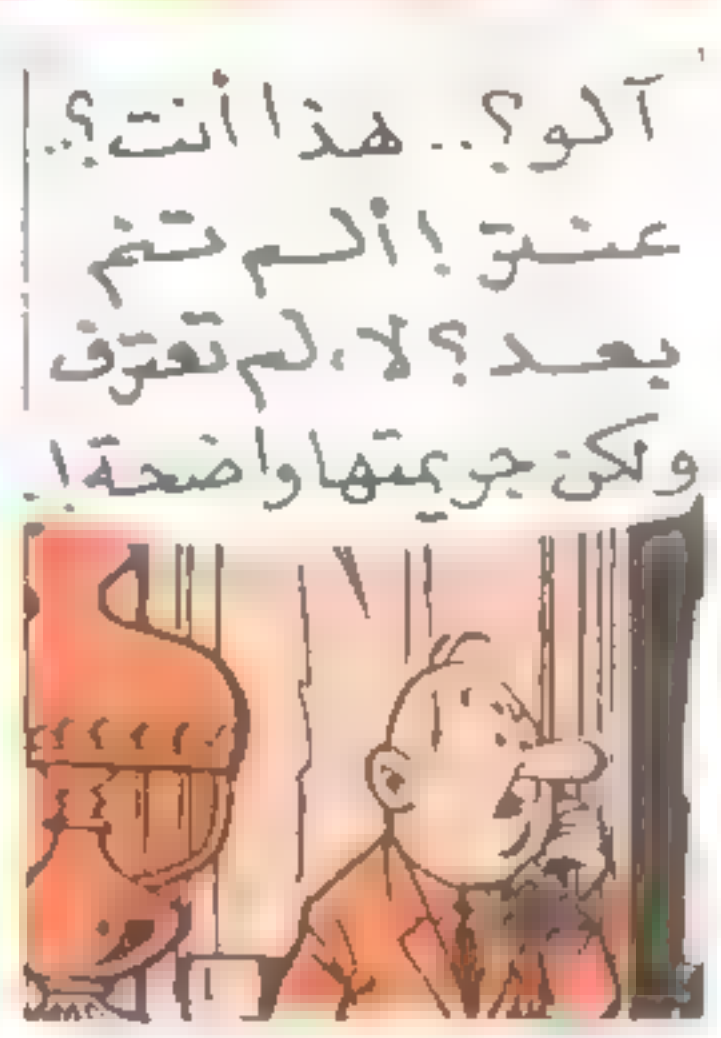 آلو؟.. هذا أنت؟..
عشق! ألم تنم
بعد؟ لا، لم تعترف
ولكن جريمتها واضحة!